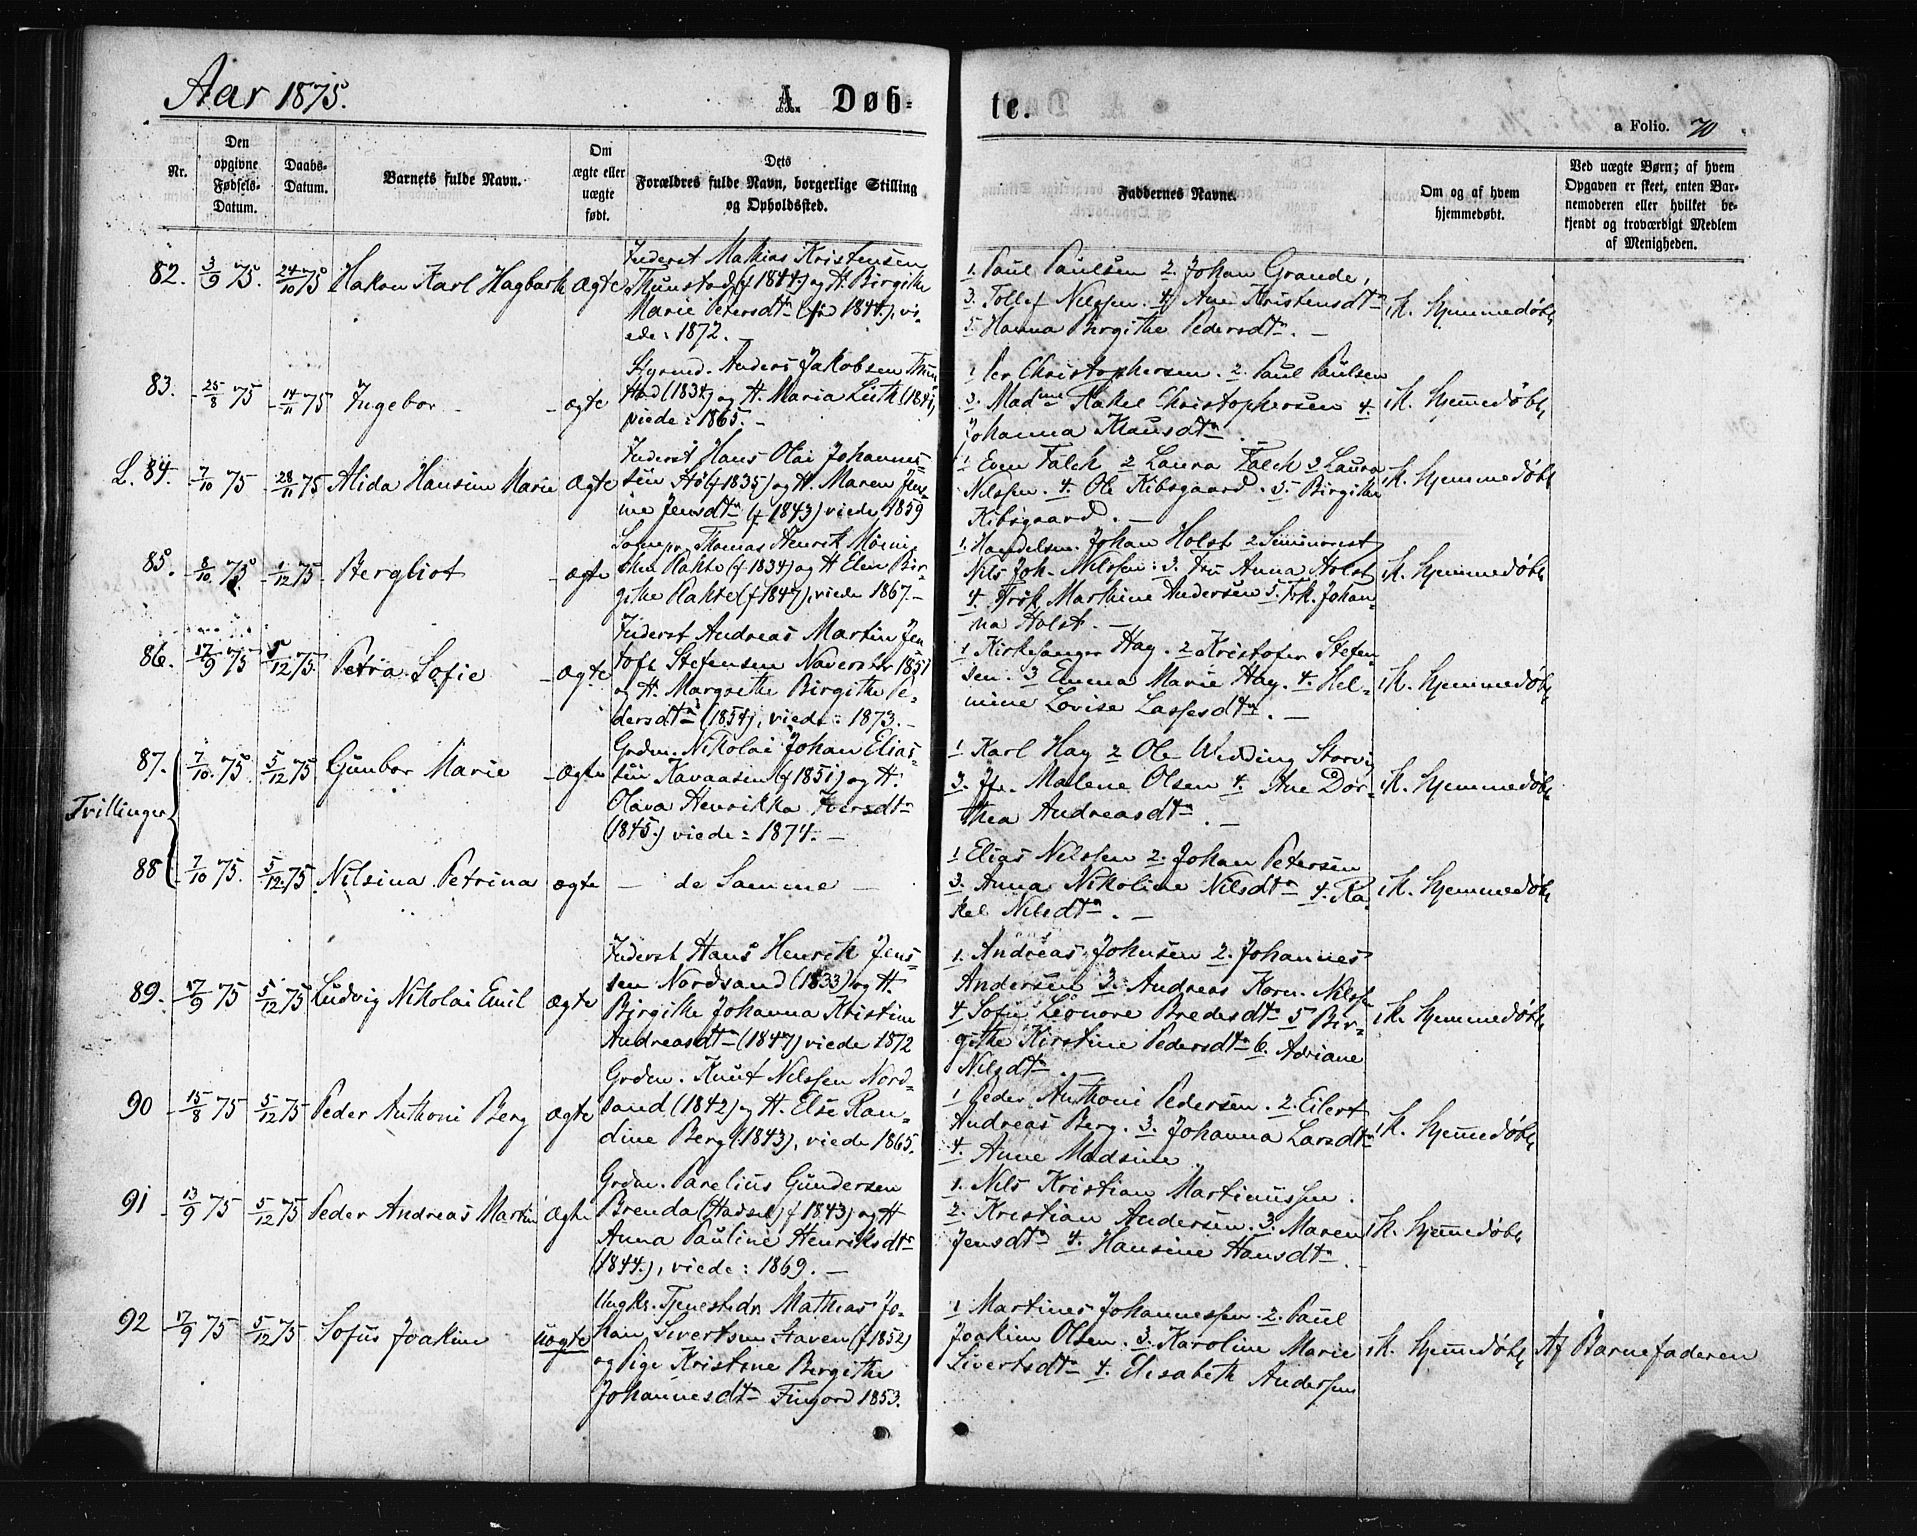 Aar 1875.
A. Døb-
te.
a Folio. 70
Nr.
Den
opgivne
Fødsels-
Datum.
Daabs-
Datum.
Barnets fulde Navn.
Om
ægte eller
uægte
født.
Dets
Forældres fulde Navn, borgerlige Stilling
og Opholdssted.
Faddernes Navne.
Om og af hvem
hjemmedøbt.
Ved uægte Børn; af hvem
Opgaven er skeet, enten Bar-
nemoderen eller hvilket be-
kjendt og troværdigt Medlem
af Menigheden.
82. 3/9 75. 24/10 75 Hakon Karl Hagbarth Ægte
Inderst Mathias Kristensen
Thunstad (f 1844) og H. Birgithe
Marie Petersdtr (1844), vi-
ede: 1872.
1. Paul Paulsen 2. Johan Grande,
3. Tollef Nilssen. 4. Ane Kristensdtr
5. Hanna Birgithe Pedersdtr. —
ik. hjemmedøbt
83. 25/8 75 14/11 75 Ingebor - ægte
Styrmd. Anders Jakobsen Thun-
stad (1834) og H. Maria Lith (1841),
viede: 1865. -
1 Per Christophersen. 2. Paul Paulsen
3. Madme Rakel Christophersen 4.
Johanna Klausdtr. —
ik. hjemmedøbt
L. 84. 7/10 75 28/11 75 Alida Hansine Marie Ægte
Inderst Hans Olai Johannes-
sen Stø (f 1835) og H. Maren Jen-
sine Jensdtr (f 1843) viede 1859
1 Even Falch 2 Laura Falch 3 Laura
Nilssen. 4. Ole Kibsgaard. 5. Birgithe
Kibsgaard. —
ik. hjemmedøbt
85. 8/10 75 1/12 75 Bergliot - ægte
Thomas Henrik
(f 1834) og H. Elen Bir-
githe (f 1847), viede 1867. —
1. Handelsm. Johan Holst 2 Seminarist
Nils Joh. Nilssen: 3. Fru Anna Holst
4. Frøk. Marthine Andersen 5. Frk. Johan-
na Holst. —
ik. hjemmedøbt
86. 17/9 75 5/12 75 Petra Sofie - ægte
Inderst Andreas Martin Jen-
toft Stefensen 1851
og H. Margrethe Birgithe Pe-
dersdtr (1854), viede: 1873. —
1 Kirkesanger Hag. 2 Kristofer Stefen-
sen. 3 Emma Marie Hag. 4. Hel-
mine Lovise Lassesdtr. —
ik. hjemmedøbt
Tvillinger
87. 7/10 75. 5/12 75 Gunbor Marie - Ægte
Grdm. Nikolai Johan Elias-
sen Kavaasen (f 1851) og H.
Olava Henrikka Iversdtr
(1845) viede: 1874. —
1 Karl Hag 2 Ole Wedding Storvig
3. Jfr. Malene Olsen 4. Ane Dor-
thea Andreasdtr. —
ik. hjemmedøbt
88 7/10 75. 5/12 75. Nilsina Petrina ægte — de Samme —
1 Elias Nilssen 2. Johan Petersen
3. Anna Nikoline Nilsdtr 4. Ra-
kel Nilsdtr. —
ik. hjemmedøbt
89. 17/9 75 5/12 75 Ludvig Nikolai Emil Ægte
Inderst Hans Henrik Jens-
sen Nordsand (1833) og H.
Birgithe Johanna Kristine
Andreasdtr (1847) viede 1872
1. Andreas Johnsen 2. Johannes
Andersen 3. Andreas Korn. Nilssen
4. Sofie Leonore Bredesdtr 5 Bir-
githe Kirstine Pedersdtr 6. Adriane
Nilsdtr. —
ik. hjemmedøbt
90 15/8 75 5/12 75 Peder Anthoni Berg Ægte
Grdm. Knut Nilssen Nord-
sand (1842) og H. Else Ran-
dine Berg (1843), viede 1865.
1 Peder Anthoni Pedersen. 2. Eilert
Andreas Berg. 3. Johanna Larsdtr
4. Anne Madsine
ik. hjemmedøbt
91 13/9 75 5/12 75 Peder Andreas Martin Ægte
Grdm. Parelius Gundersen
Brenda (Hadsel) f 1843) og H
Anna Pauline Henriksdtr
(1844), viede: 1869. —
1. Nils Kristian Martinussen.
2. Kristian Andersen. 3. Maren
Jensdtr 4. Hansine Hansdtr.
ik. hjemmedøbt
92 17/9 75 5/12 75 Sofus Joakim uægte
Ungkr. Tjenestedr. Mathias Jo-
han Sivertsen Staven (f 1852)
og pige Kristine Bergithe
Johannesdtr Fingord 1853.
1 Martines Johannessen. 2. Paul
Joakim Olsen. 3. Karoline Marie
Sivertsdtr 4. Elisabeth Andersen
ik. hjemmedøbt
Af Barnefaderen